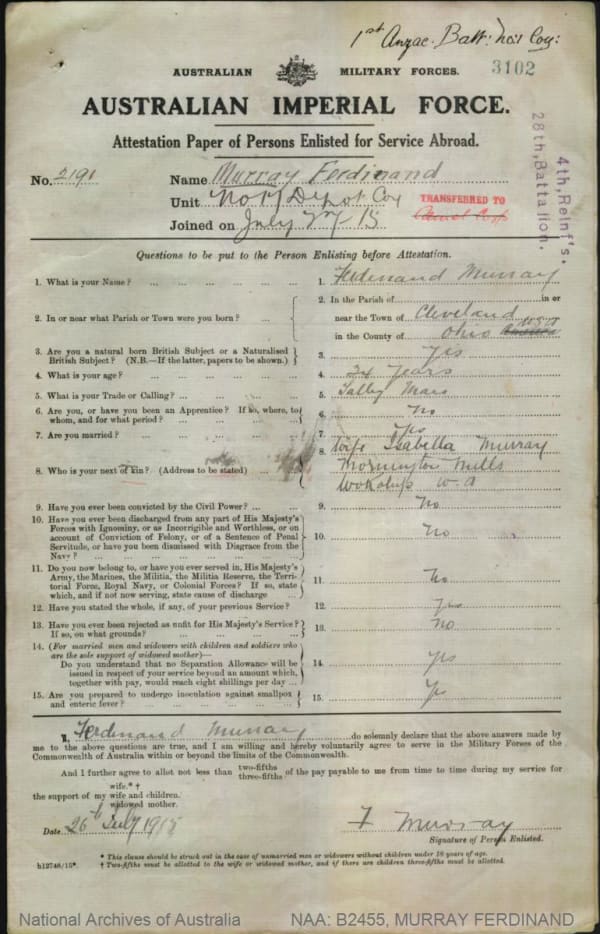 1st Anzac. Batt: No:1 Coy:
AUSTRALIAN MILITARY FORCES.
3102
AUSTRALIAN IMPERIAL FORCE.
Attestation Paper of Persons Enlisted for Service Abroad.
4th, Reinf's.
28th, Battalion.
No. 2191 Name Murray Ferdinand
Unit No 17 Depot Coy
TRANSFERRED TO
Joined on July 15
Questions to be put to the Person Enlisting before Attestation.
1. What is your Name? ... 1. Ferdinand Murray
2. In or near what Parish or Town were you born? ... 2. In the Parish of in or
near the Town of Cleveland
in the County of Ohio
3. Are you a natural born British Subject or a Naturalised
British Subject? (N.B.—If the latter, papers to be shown.) 3. Yes
4. What is your age? ... 4. 24 Years
5. What is your Trade or Calling? ... 5. Talley Man
6. Are you, or have you been an Apprentice? If so, where, to
whom, and for what period? ... 6. No
7. Are you married? ... 7. Yes
8. Who is your next of kin? (Address to be stated) ... 8. Wife Isabella Murray
Mornington Mills
Wokalup W.A
9. Have you ever been convicted by the Civil Power? ... 9. No
10. Have you ever been discharged from any part of His Majesty's
Forces with Ignominy, or as Incorrigible and Worthless, or on
account of Conviction of Felony, or of a Sentence of Penal
Servitude, or have you been dismissed with Disgrace from the
Navy? ... 10. No
11. Do you now belong to, or have you ever served in, His Majesty's
Army, the Marines, the Militia, the Militia Reserve, the Terri-
torial Force, Royal Navy, or Colonial Forces? If so, state
which, and if not now serving, state cause of discharge 11. No
12. Have you stated the whole, if any, of your previous Service? 12. Yes
13. Have you ever been rejected as unfit for His Majesty's Service?
If so, on what grounds? ... 13. No
14. (For married men and widowers with children and soldiers who
are the sole support of widowed mother)—
Do you understand that no Separation Allowance will be
issued in respect of your service beyond an amount which,
together with pay, would reach eight shillings per day ... 14. Yes
15. Are you prepared to undergo inoculation against smallpox
and enteric fever? ... 15. Yes
I, Ferdinand Murray do solemnly declare that the above answers made by
me to the above questions are true, and I am willing and hereby voluntarily agree to serve in the Military Forces of the
Commonwealth of Australia within or beyond the limits of the Commonwealth.
And I further agree to allot not less than two-fifths three-fifths of the pay payable to me from time to time during my service for
wife.* †
the support of my wife and children.
widowed mother.
Date 26th July 1915
F Murray
Signature of Person Enlisted.
* This clause should be struck out in the case of unmarried men or widowers without children under 18 years of age.
b12748/15*. † Two-fifths must be allotted to the wife or widowed mother, and if there are children three-fifths must be allotted.
National Archives of Australia NAA: B2455, MURRAY FERDINAND